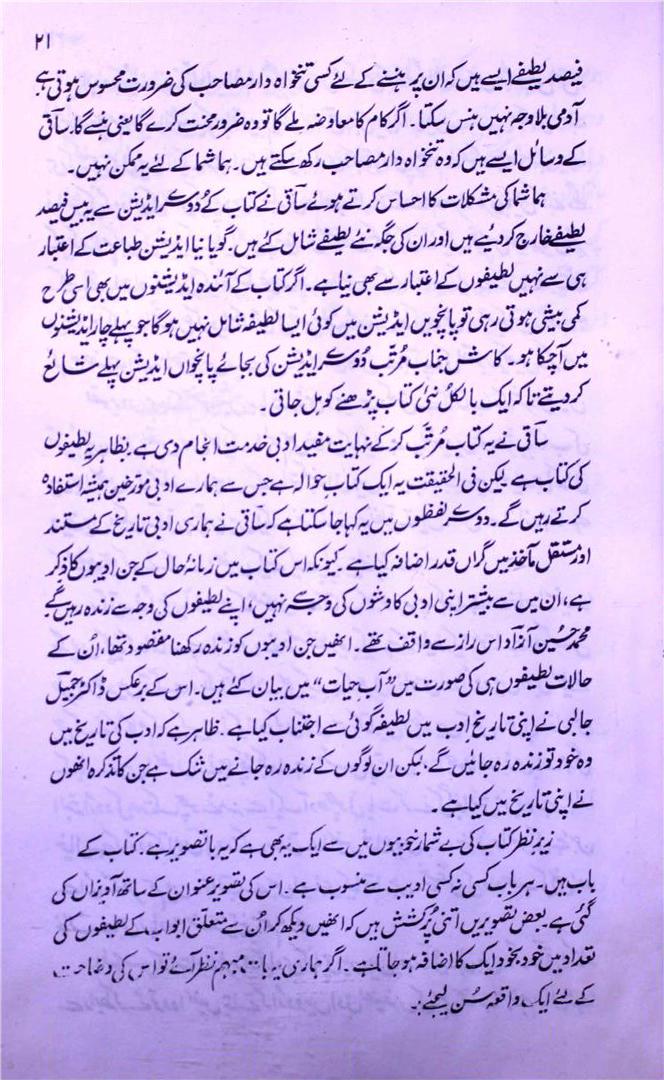 ۲۱
فیصد لطیفے ایسے ہیں کہ ان پر ہنسنے کے لئے کسی تنخواہ دار مصاحب کی ضرورت محسوس ہوتی ہے
آدمی بلا وجہ نہیں ہنس سکتا۔ اگر کام کا معاوضہ ملے گا تو وہ ضرور محنت کرے گا یعنی ہنسے گا۔ ساقی
کے وسائل ایسے ہیں کہ وہ تنخواہ دار مصاحب رکھ سکتے ہیں۔ ہما شما کے لئے یہ ممکن نہیں۔
ہما شما کی مشکلات کا احساس کرتے ہوئے ساقی نے کتاب کے دوسرے ایڈیشن سے یہ بیس فیصد
لطیفے خارج کر دیئے ہیں اور ان کی جگہ نئے لطیفے شامل کئے ہیں۔ گویا نیا ایڈیشن طباعت کے اعتبار
ہی سے نہیں لطیفوں کے اعتبار سے بھی نیا ہے۔ اگر کتاب کے آئندہ ایڈیشنوں میں بھی اسی طرح
کمی بیشی ہوتی رہی تو پانچویں ایڈیشن میں کوئی ایسا لطیفہ شامل نہیں ہوگا جو پہلے چار ایڈیشنوں
میں آچکا ہو۔ کاش جناب مرتب دوسرے ایڈیشن کی بجائے پانچواں ایڈیشن پہلے شائع
کر دیتے تاکہ ایک بالکل نئی کتاب پڑھنے کو مل جاتی۔
ساقی نے یہ کتاب مرتب کر کے نہایت مفید ادبی خدمت انجام دی ہے۔ بظاہر یہ لطیفوں
کی کتاب ہے لیکن فی الحقیقت یہ ایک کتاب حوالہ ہے جس سے ہمارے ادبی مورخین ہمیشہ استفادہ
کرتے رہیں گے۔ دوسرے لفظوں میں یہ کہا جا سکتا ہے کہ ساقی نے ہماری ادبی تاریخ کے مستند
اور مستقل مآخذ میں گراں قدر اضافہ کیا ہے۔ کیونکہ اس کتاب میں زمانۂ حال کے جن ادیبوں کا ذکر
ہے، ان میں سے بیشتر اپنی ادبی کاوشوں کی وجہ سے نہیں، اپنے لطیفوں کی وجہ سے زندہ رہیں گے
محمد حسین آزاد اس راز سے واقف تھے۔ انھیں جن ادیبوں کو زندہ رکھنا مقصود تھا، اُن کے
حالات لطیفوں ہی کی صورت میں "آب حیات" میں بیان کئے ہیں۔ اس کے برعکس ڈاکٹر جمیل
جالبی نے اپنی تاریخ ادب میں لطیفہ گوئی سے اجتناب کیا ہے۔ ظاہر ہے کہ ادب کی تاریخ میں
وہ خود تو زندہ رہ جائیں گے، لیکن ان لوگوں کے زندہ رہ جانے میں شک ہے جن کا تذکرہ انھوں
نے اپنی تاریخ میں کیا ہے۔
زیر نظر کتاب کی بے شمار خوبیوں میں سے ایک یہ بھی ہے کہ یہ باتصویر ہے۔ کتاب کے
باب ہیں۔ ہر باب کسی نہ کسی ادیب سے منسوب ہے۔ اس کی تصویر عنوان کے ساتھ آویزاں کی
گئی ہے۔ بعض تصویریں اتنی پُرکشش ہیں کہ انھیں دیکھ کر اُن سے متعلق ابواب کے لطیفوں کی
تعداد میں خود بخود ایک کا اضافہ ہو جاتا ہے۔ اگر ہماری یہ بات مبہم نظر آئے تو اس کی وضاحت
کے لئے ایک واقعہ سُن لیجئے:۔